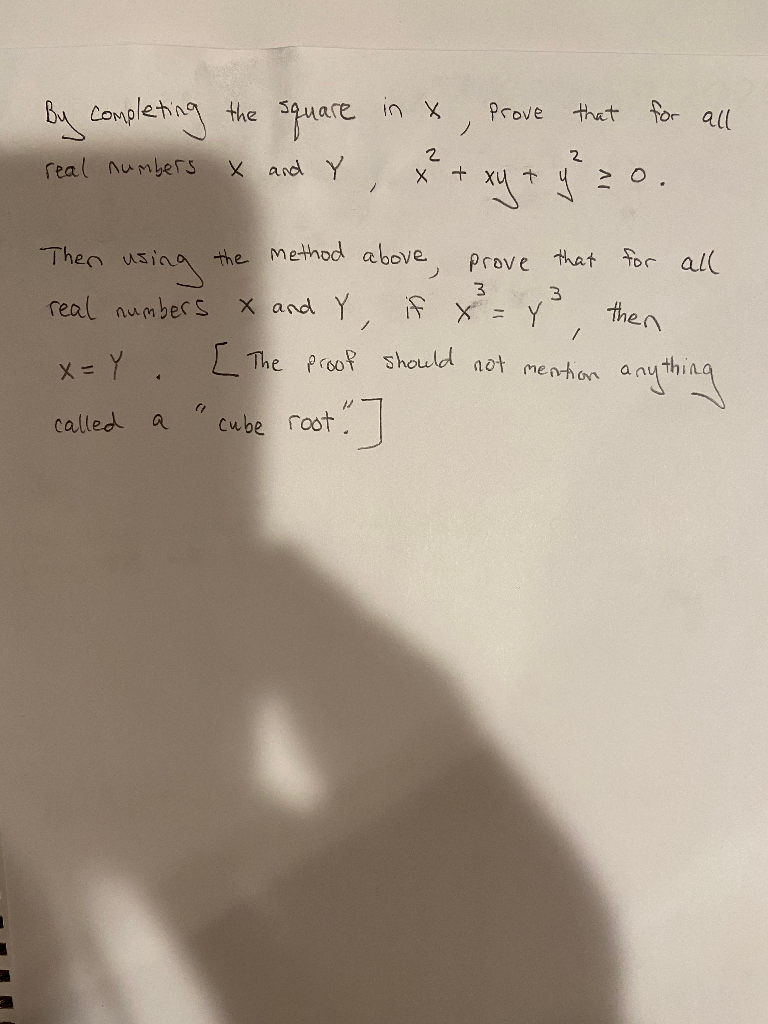 By completing the square in x, Prove that for all
real numbers x and Y, x² + xy + y² ≥ 0.
Then using the method above, prove that for all
real numbers x and Y, if x³ = Y³, then
x = Y. [The proof should not mention anything
called a "cube root."]